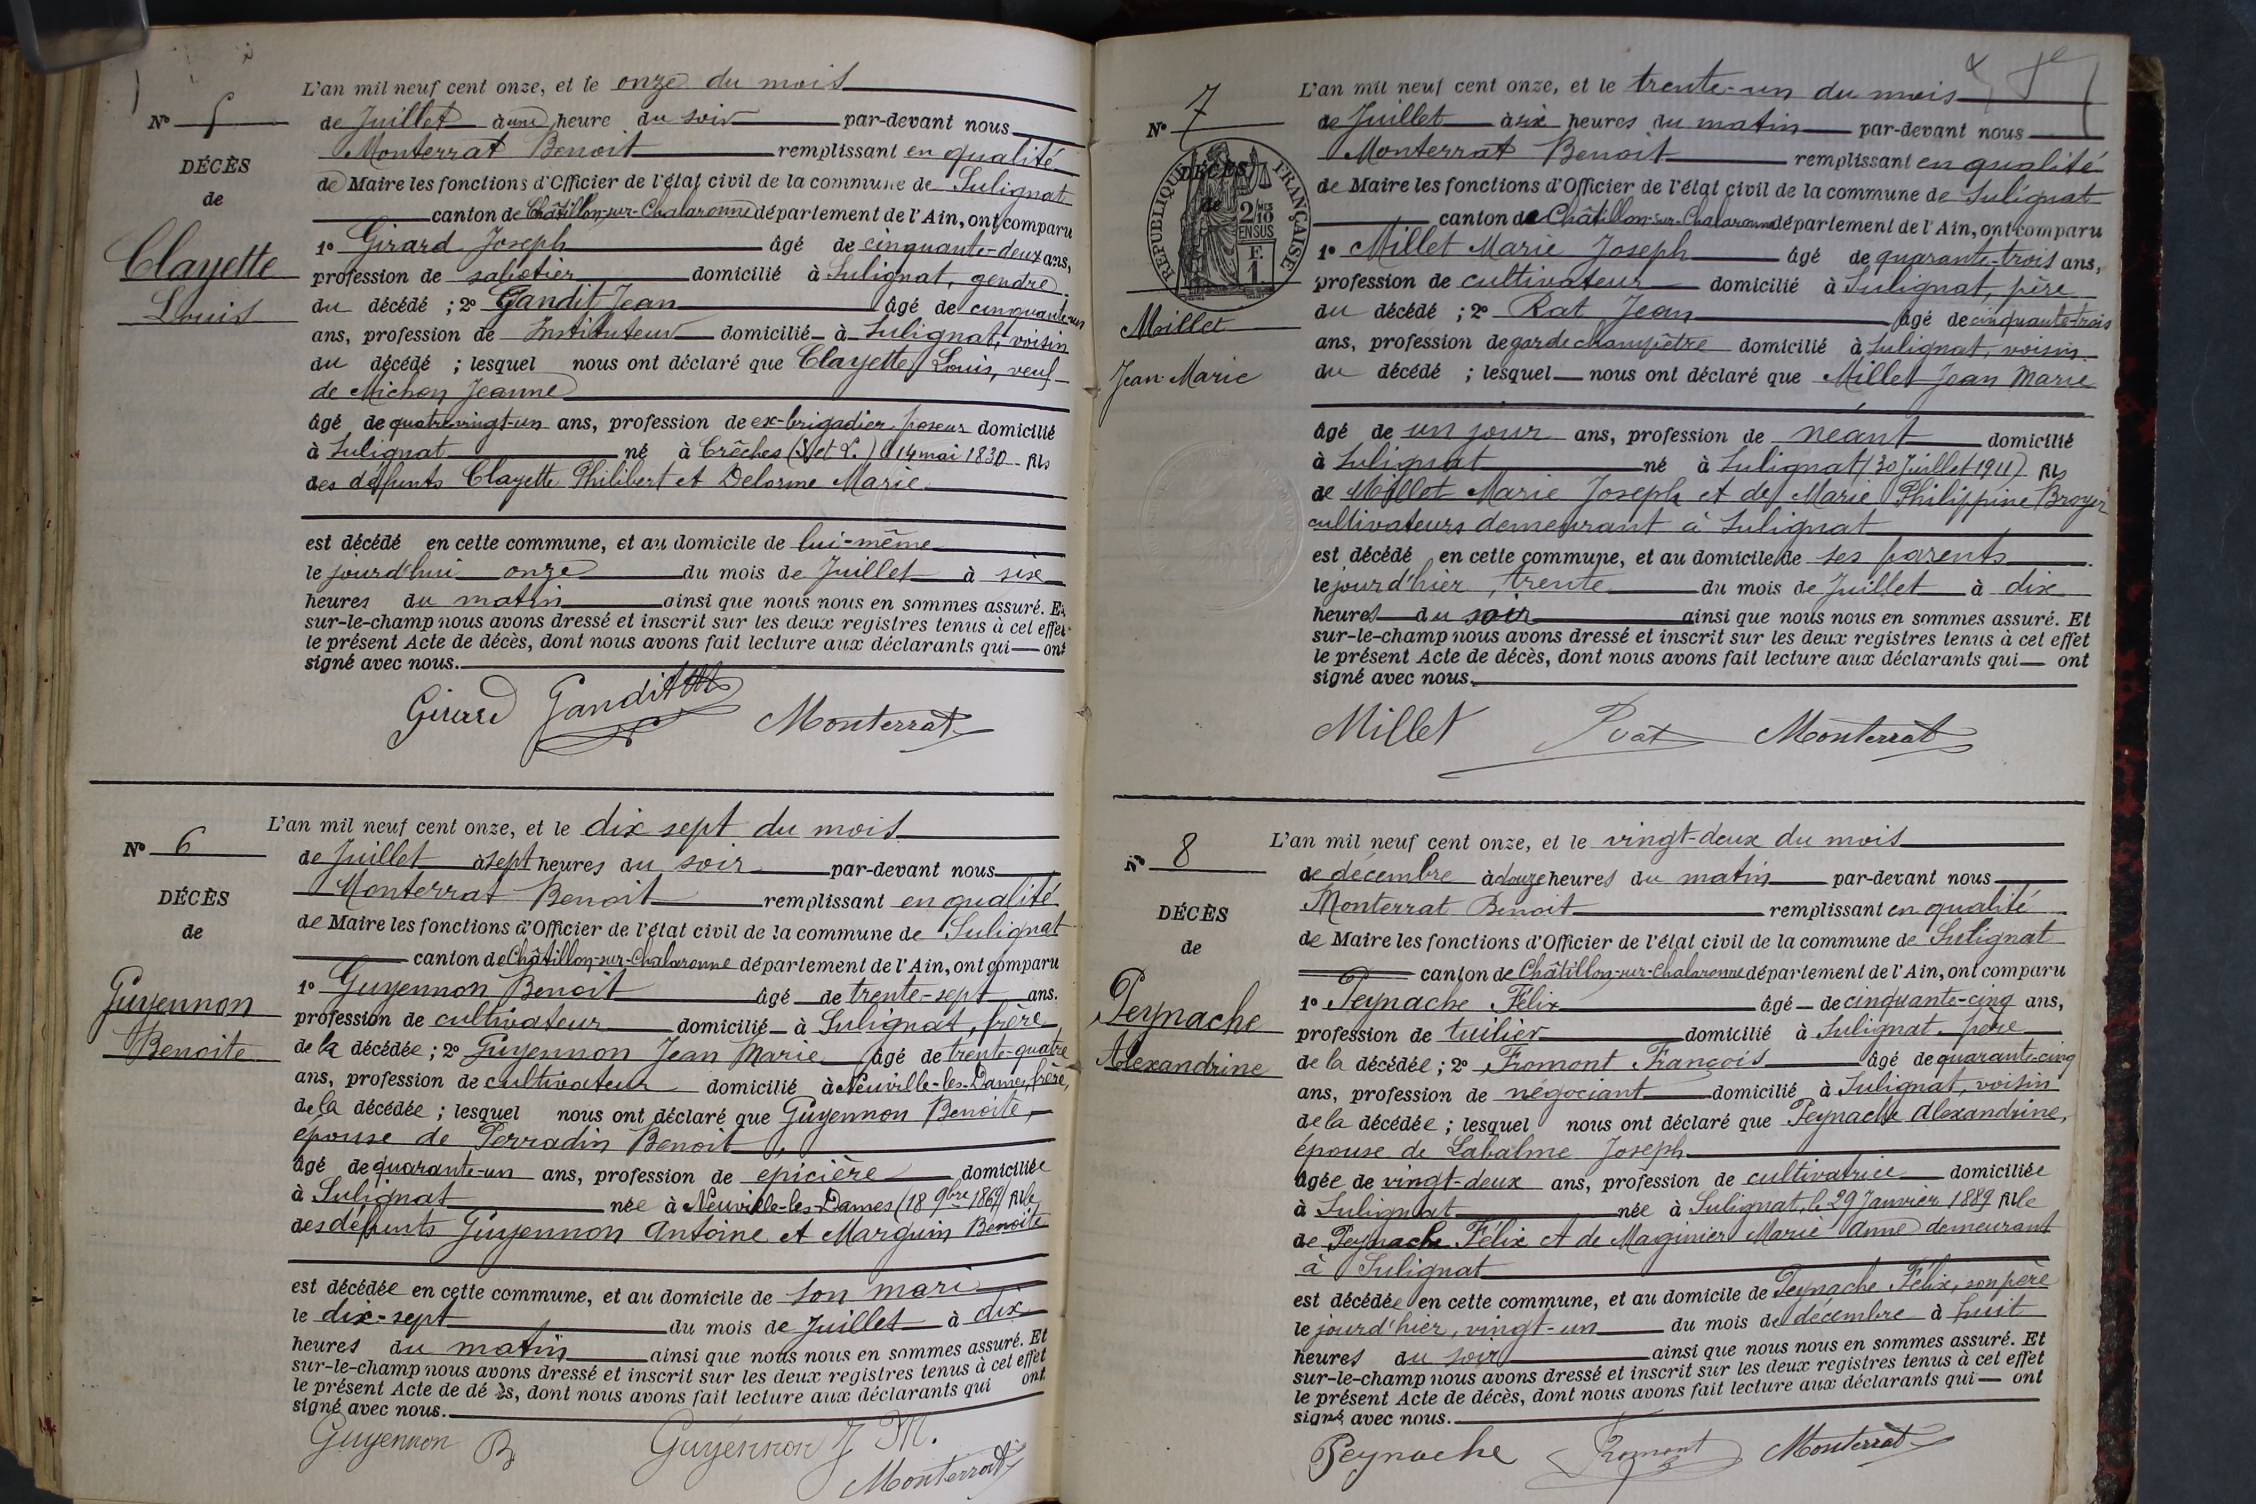 L'an mil neuf cent onze, et le onze du mois
N° 5
de Juillet à une heure du soir par-devant nous
Monterrat Benoit remplissant en qualité
DÉCÈS
de Maire les fonctions d'Officier de l'état civil de la commune de Sulignat
de
canton de Châtillon-sur-Chalaronne département de l'Ain, ont comparu
1° Girard Joseph âgé de cinquante-deux ans,
Clayette
profession de sabotier domicilié à Sulignat, gendre
Louis
du décédé ; 2° Gandit Jean âgé de cinquante-un
ans, profession de Instituteur domicilié à Sulignat, voisin
du décédé ; lesquel nous ont déclaré que Clayette Louis, veuf
de Michon Jeanne
âgé de quatre-vingt-un ans, profession de ex-brigadier poseur domicilié
à Sulignat né à Crêches (S et L.) le 14 mai 1830 fils
des défunts Clayette Philibert et Delorme Marie
est décédé en cette commune, et au domicile de lui-même
le jourd'hui onze du mois de Juillet à six
heures du matin ainsi que nous nous en sommes assuré. Et
sur-le-champ nous avons dressé et inscrit sur les deux registres tenus à cet effet
le présent Acte de décès, dont nous avons fait lecture aux déclarants qui ont
signé avec nous.
Girard Gandit Monterrat
L'an mil neuf cent onze, et le dix sept du mois
N° 6
de Juillet à sept heures du soir par-devant nous
Monterrat Benoit remplissant en qualité
DÉCÈS
de Maire les fonctions d'Officier de l'état civil de la commune de Sulignat
de
canton de Châtillon-sur-Chalaronne département de l'Ain, ont comparu
1° Guyennon Benoit âgé de trente-sept ans.
Guyennon
profession de cultivateur domicilié à Sulignat, frère
Benoite
de la décédée ; 2° Guyennon Jean Marie âgé de trente-quatre
ans, profession de cultivateur domicilié à Neuville-les-Dames, frère,
de la décédée ; lesquel nous ont déclaré que Guyennon Benoite,
épouse de Perradin Benoit
âgé de quarante-un ans, profession de épicière domiciliée
à Sulignat née à Neuville-les-Dames (18 9bre 1869) fille
des défunts Guyennon Antoine et Marguin Benoite
est décédée en cette commune, et au domicile de son mari
le dix-sept du mois de Juillet à dix
heures du matin ainsi que nous nous en sommes assuré. Et
sur-le-champ nous avons dressé et inscrit sur les deux registres tenus à cet effet
le présent Acte de dé ès, dont nous avons fait lecture aux déclarants qui ont
signé avec nous.
Guyennon B Guyennon J M.
Monterrat
L'an mil neuf cent onze, et le trente-un du mois
N° 7
de Juillet à six heures du matin par-devant nous
Monterrat Benoit remplissant en qualité
DÉCÈS
de Maire les fonctions d'Officier de l'état civil de la commune de Sulignat
de
RÉPUBLIQUE FRANÇAISE
2/10 MES
EN SUS
F.
1
canton de Châtillon-sur-Chalaronne département de l'Ain, ont comparu
1° Millet Marie Joseph âgé de quarante-trois ans,
profession de cultivateur domicilié à Sulignat, père
Millet
du décédé ; 2° Rat Jean âgé de cinquante-trois
ans, profession de garde champêtre domicilié à Sulignat, voisin
Jean Marie
du décédé ; lesquel nous ont déclaré que Millet Jean Marie
âgé de un jour ans, profession de néant domicilié
à Sulignat né à Sulignat (30 Juillet 1911) fils
de Millet Marie Joseph et de Marie Philippine Broyer
cultivateurs demeurant à Sulignat
est décédé en cette commune, et au domicile de ses parents
le jourd'hier, trente du mois de Juillet à dix
heures du soir ainsi que nous nous en sommes assuré. Et
sur-le-champ nous avons dressé et inscrit sur les deux registres tenus à cet effet
le présent Acte de décès, dont nous avons fait lecture aux déclarants qui ont
signé avec nous.
Millet Rat Monterrat
L'an mil neuf cent onze, et le vingt-deux du mois
N° 8
de décembre à douze heures du matin par-devant nous
Monterrat Benoit remplissant en qualité
DÉCÈS
de Maire les fonctions d'Officier de l'état civil de la commune de Sulignat
de
canton de Châtillon-sur-Chalaronne département de l'Ain, ont comparu
1° Peynache Félix âgé de cinquante-cinq ans,
Peynache
profession de tuilier domicilié à Sulignat père
Alexandrine
de la décédée ; 2° Fromont François âgé de quarante-cinq
ans, profession de négociant domicilié à Sulignat, voisin
de la décédée ; lesquel nous ont déclaré que Peynache Alexandrine,
épouse de Labalme Joseph
âgée de vingt-deux ans, profession de cultivatrice domiciliée
à Sulignat née à Sulignat, le 29 Janvier 1889 fille
de Peynache Félix et de Maginier Marie Anne demeurant
à Sulignat
est décédée en cette commune, et au domicile de Peynache Félix, son père
le jourd'hier, vingt-un du mois de décembre à huit
heures du soir ainsi que nous nous en sommes assuré. Et
sur-le-champ nous avons dressé et inscrit sur les deux registres tenus à cet effet
le présent Acte de décès, dont nous avons fait lecture aux déclarants qui ont
signé avec nous.
Peynache Fromont Monterrat